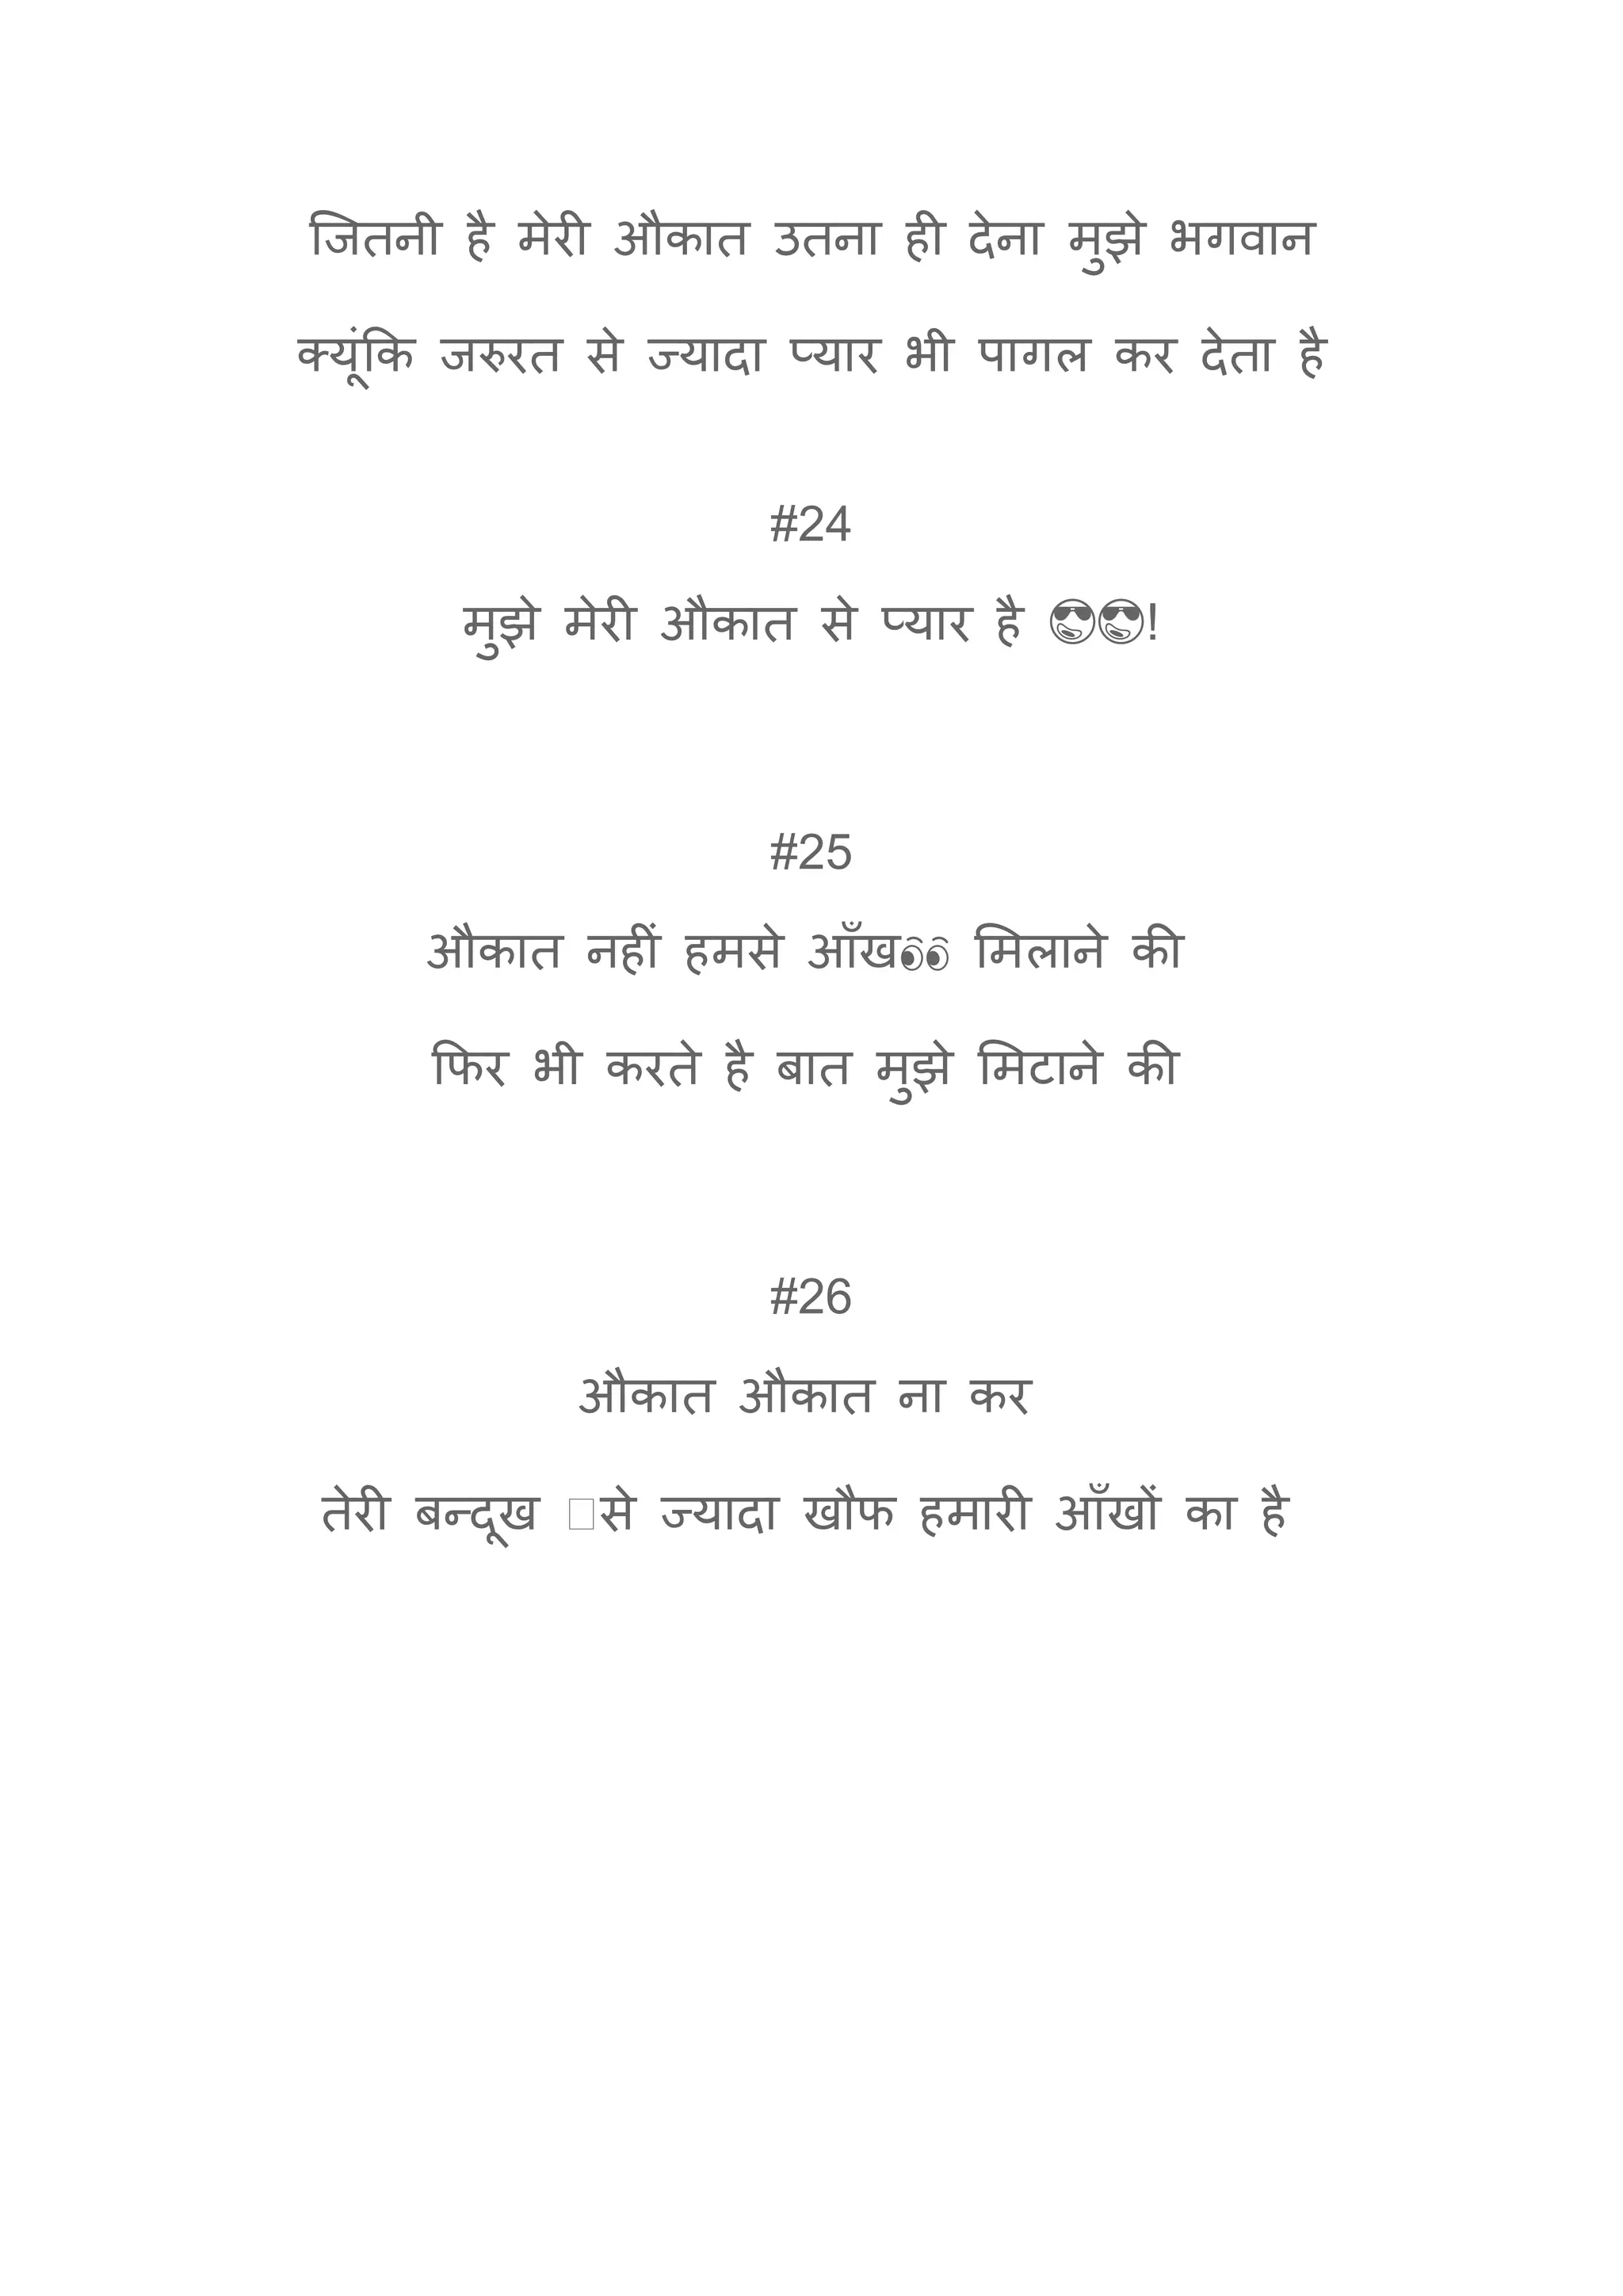 जितनी है मेरी औकात उतना ही देना मुझे भगवान
क्यूंकि जरुरत से ज्यादा प्यार भी पागल कर देता है
#24
मुझे मेरी औकात से प्यार है 😎😎!
#25
औकात नहीं हमसे आँख👀 मिलाने की
फिर भी करते है बात मुझे मिटाने की
#26
औकात औकात ना कर
तेरी बन्दूख □से ज्यादा खौफ हमारी आँखों का है